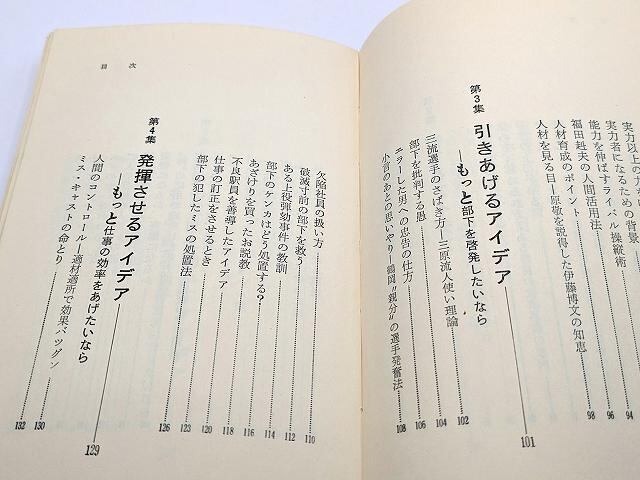 実力者になるための背景……96
能力を伸ばすライバル操縦術
福田赳夫の人間活用法……98
人材育成のポイント
人材を見る目―原敬を説得した伊藤博文の知恵
第3集 引きあげるアイデア
―もっと部下を啓発したいなら……101
三流選手のさばき方―三原流人使い理論……102
部下を批判する愚……104
エラーした男への忠告の仕方……106
小言のあとの思いやり―鶴岡“親分”の選手発奮法……108
目次
欠陥社員の扱い方……110
破滅寸前の部下を救う……112
ある上役弾劾事件の教訓……114
部下のケンカはどう処置する?……116
あざけりを買ったお説教……118
不良駅員を善導したアイデア……120
仕事の訂正をさせるとき……123
部下の犯したミスの処置法……126
第4集 発揮させるアイデア
―もっと仕事の効率をあげたいなら……129
人間のコントロール―適材適所で効果バツグン……130
ミス・キャストの命とり……132